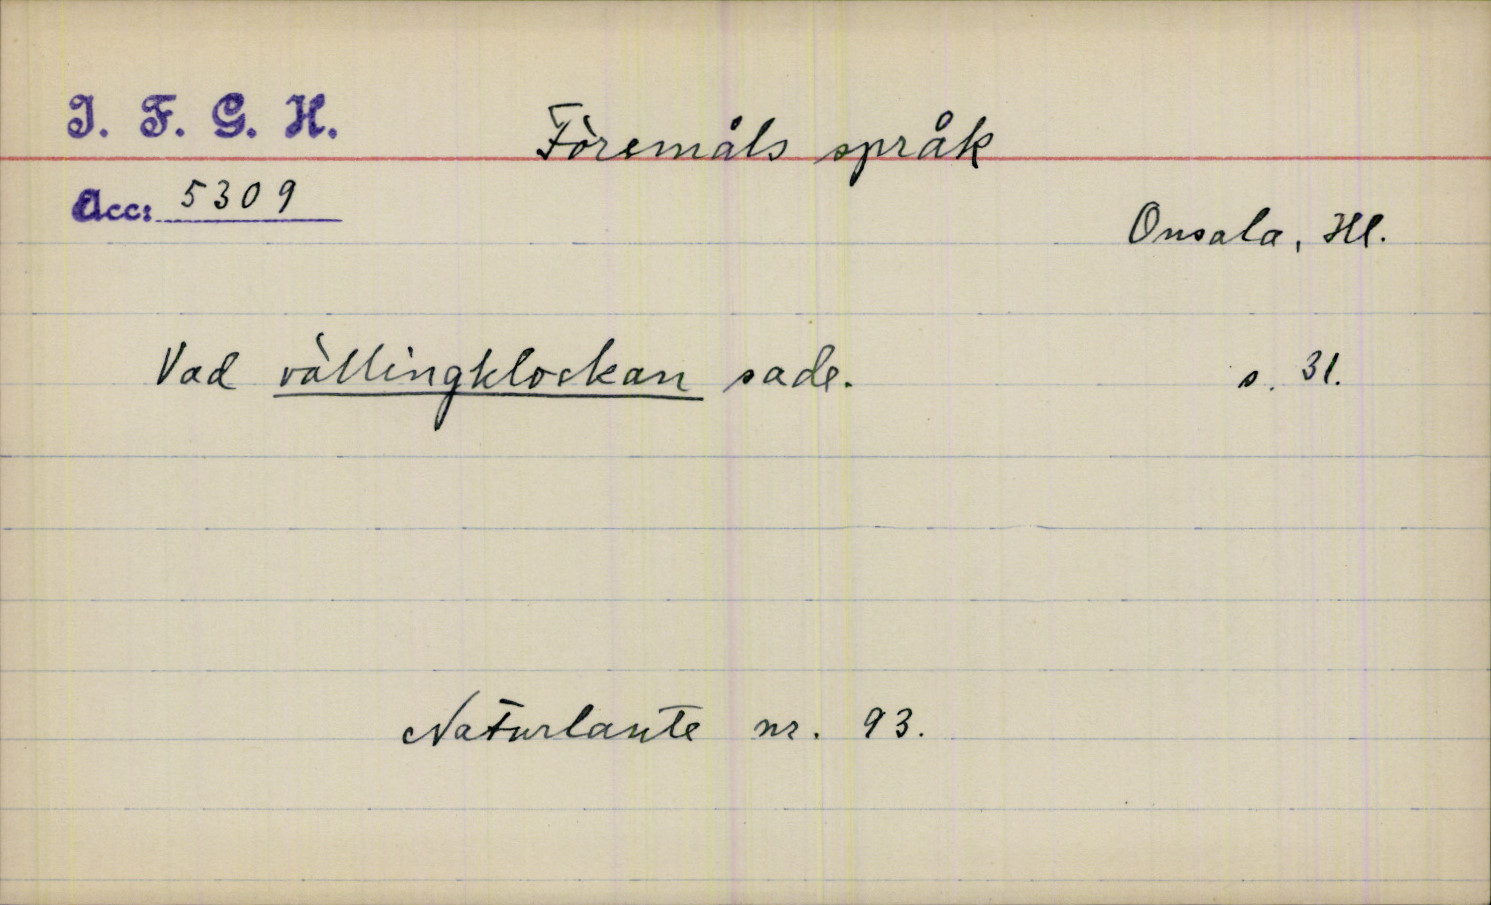 I. F. G. H.
Föremåls språk
Acc: 5309
Onsala, Hl.
Vad vällingklockan sade. s. 31.
Naturlaute nr. 93.